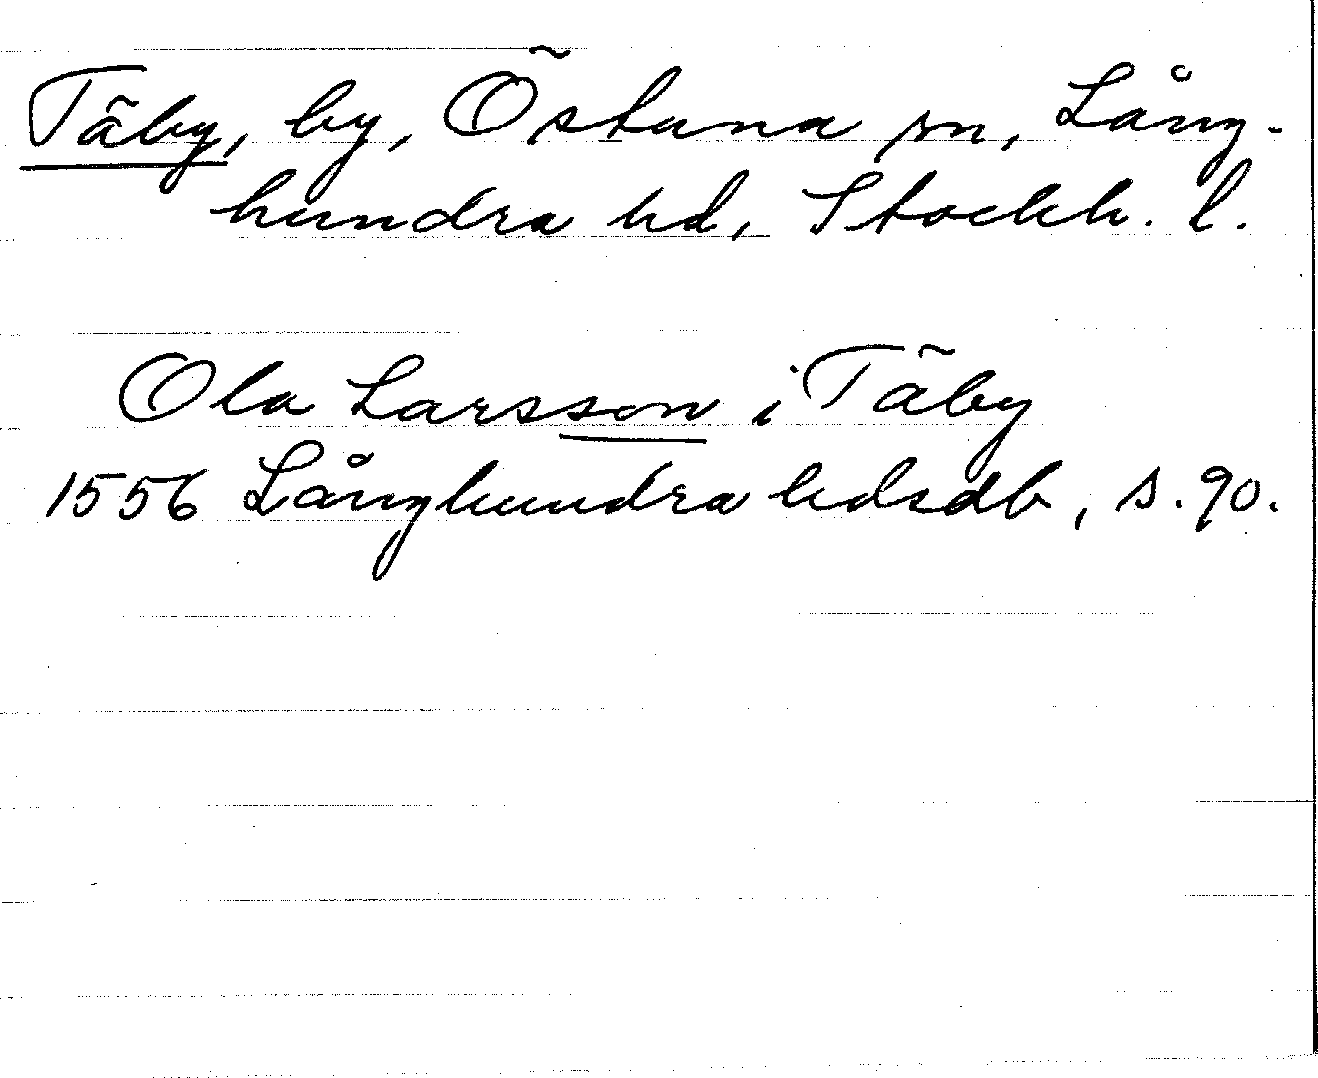 Täby, by, Östuna sn, Lång-
hundra hd, Stockh. l.
Ola Larsson i Täby
1556 Långhundra hdsdb, s. 90.